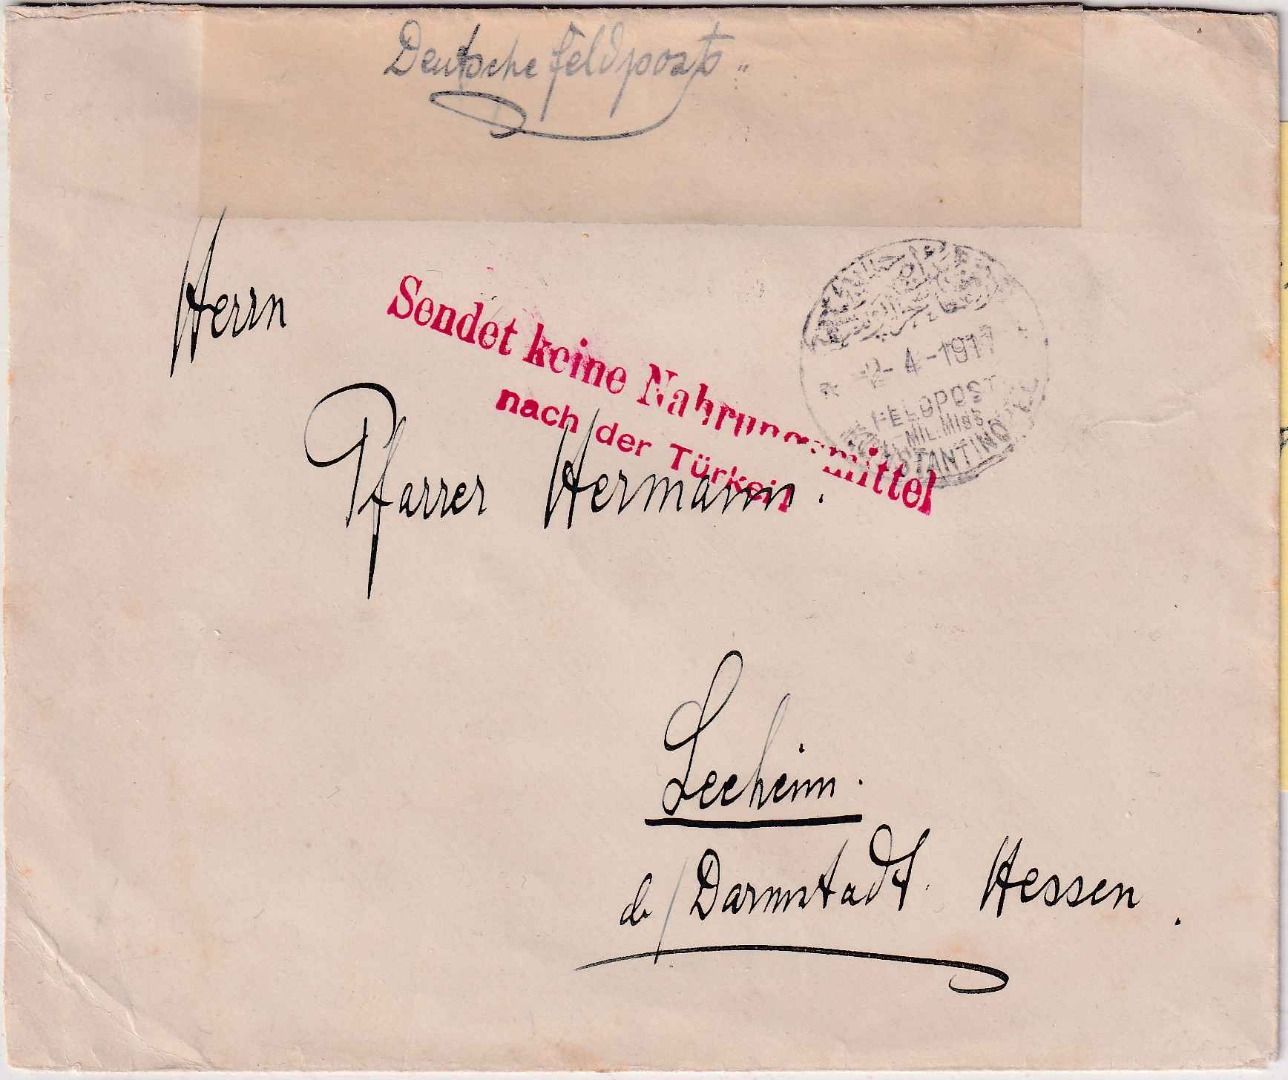 Deutsche Feldpost"
Herrn
Sendet keine Nahrungsmittel
nach der Türkei!
2-4-1917
FELDPOST
MIL.MISS.
CONSTANTINOPEL
Pfarrer Hermann.
Leeheim.
b/Darmstadt. Hessen.